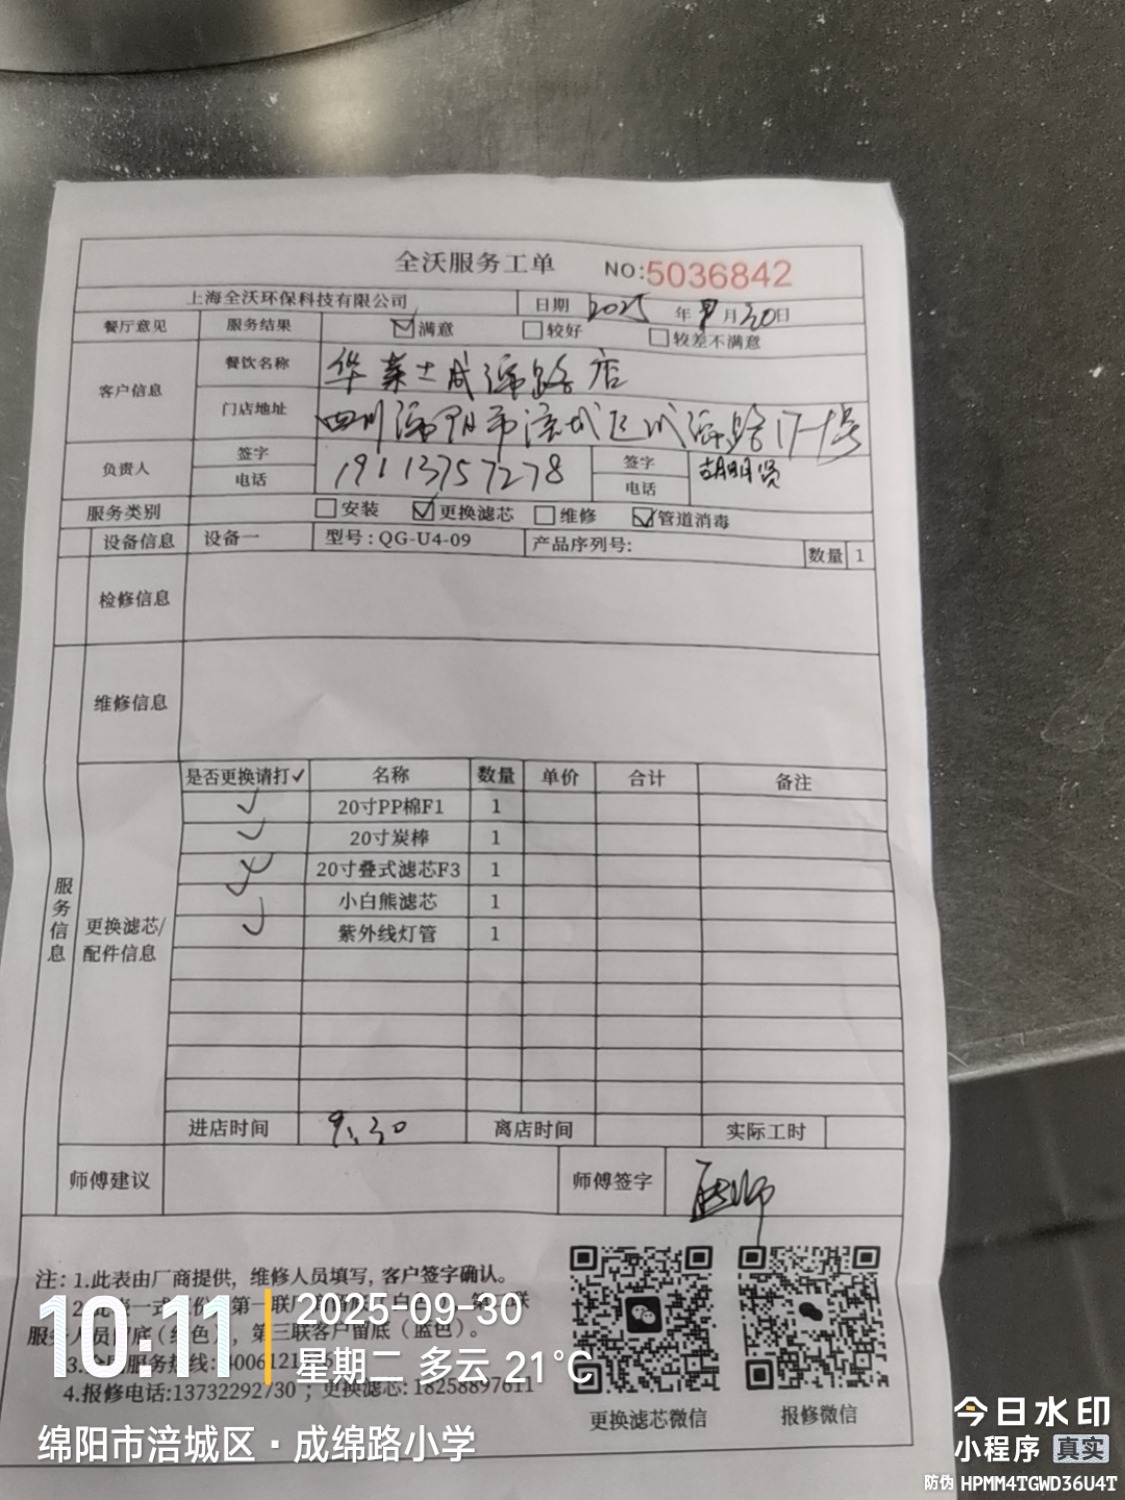 全沃服务工单 NO:5036842
上海全沃环保科技有限公司 日期 2025 年 9 月 30 日
餐厅意见 服务结果 ☑满意 □较好 □较差不满意
客户信息 餐饮名称 华莱士成绵路店
门店地址 四川绵阳市涪城区成绵路17-1号
负责人 签字 电话 19113757278 签字 电话 胡明贤
服务类别 □安装 ☑更换滤芯 □维修 ☑管道消毒
设备信息 设备一 型号:QG-U4-09 产品序列号: 数量 1
检修信息
维修信息
服务信息
更换滤芯/配件信息
是否更换请打✓ 名称 数量 单价 合计 备注
✓ 20寸PP棉F1 1
✓ 20寸炭棒 1
20寸叠式滤芯F3 1
✓ 小白熊滤芯 1
✓ 紫外线灯管 1
进店时间 9:30 离店时间 实际工时
师傅建议 师傅签字
注:1.此表由厂商提供,维修人员填写,客户签字确认。
第三联客户留底(蓝色)。
4.报修电话:13732292730 ; 更换滤芯: 18258897611
更换滤芯微信 报修微信
10:11
2025-09-30
星期二 多云 21°C
绵阳市涪城区·成绵路小学
今日水印
小程序 真实
防伪 HPMM4TGWD36U4T